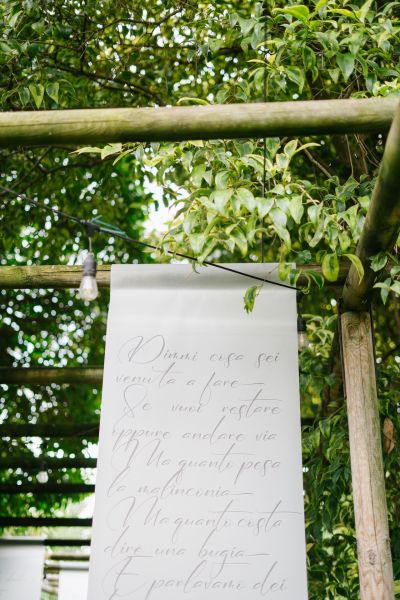 Dimmi cosa sei
venuta a fare
Se vuoi restare
oppure andare via
Ma quanto pesa
la malinconia
Ma quanto costa
dire una bugia
E parlavamo dei